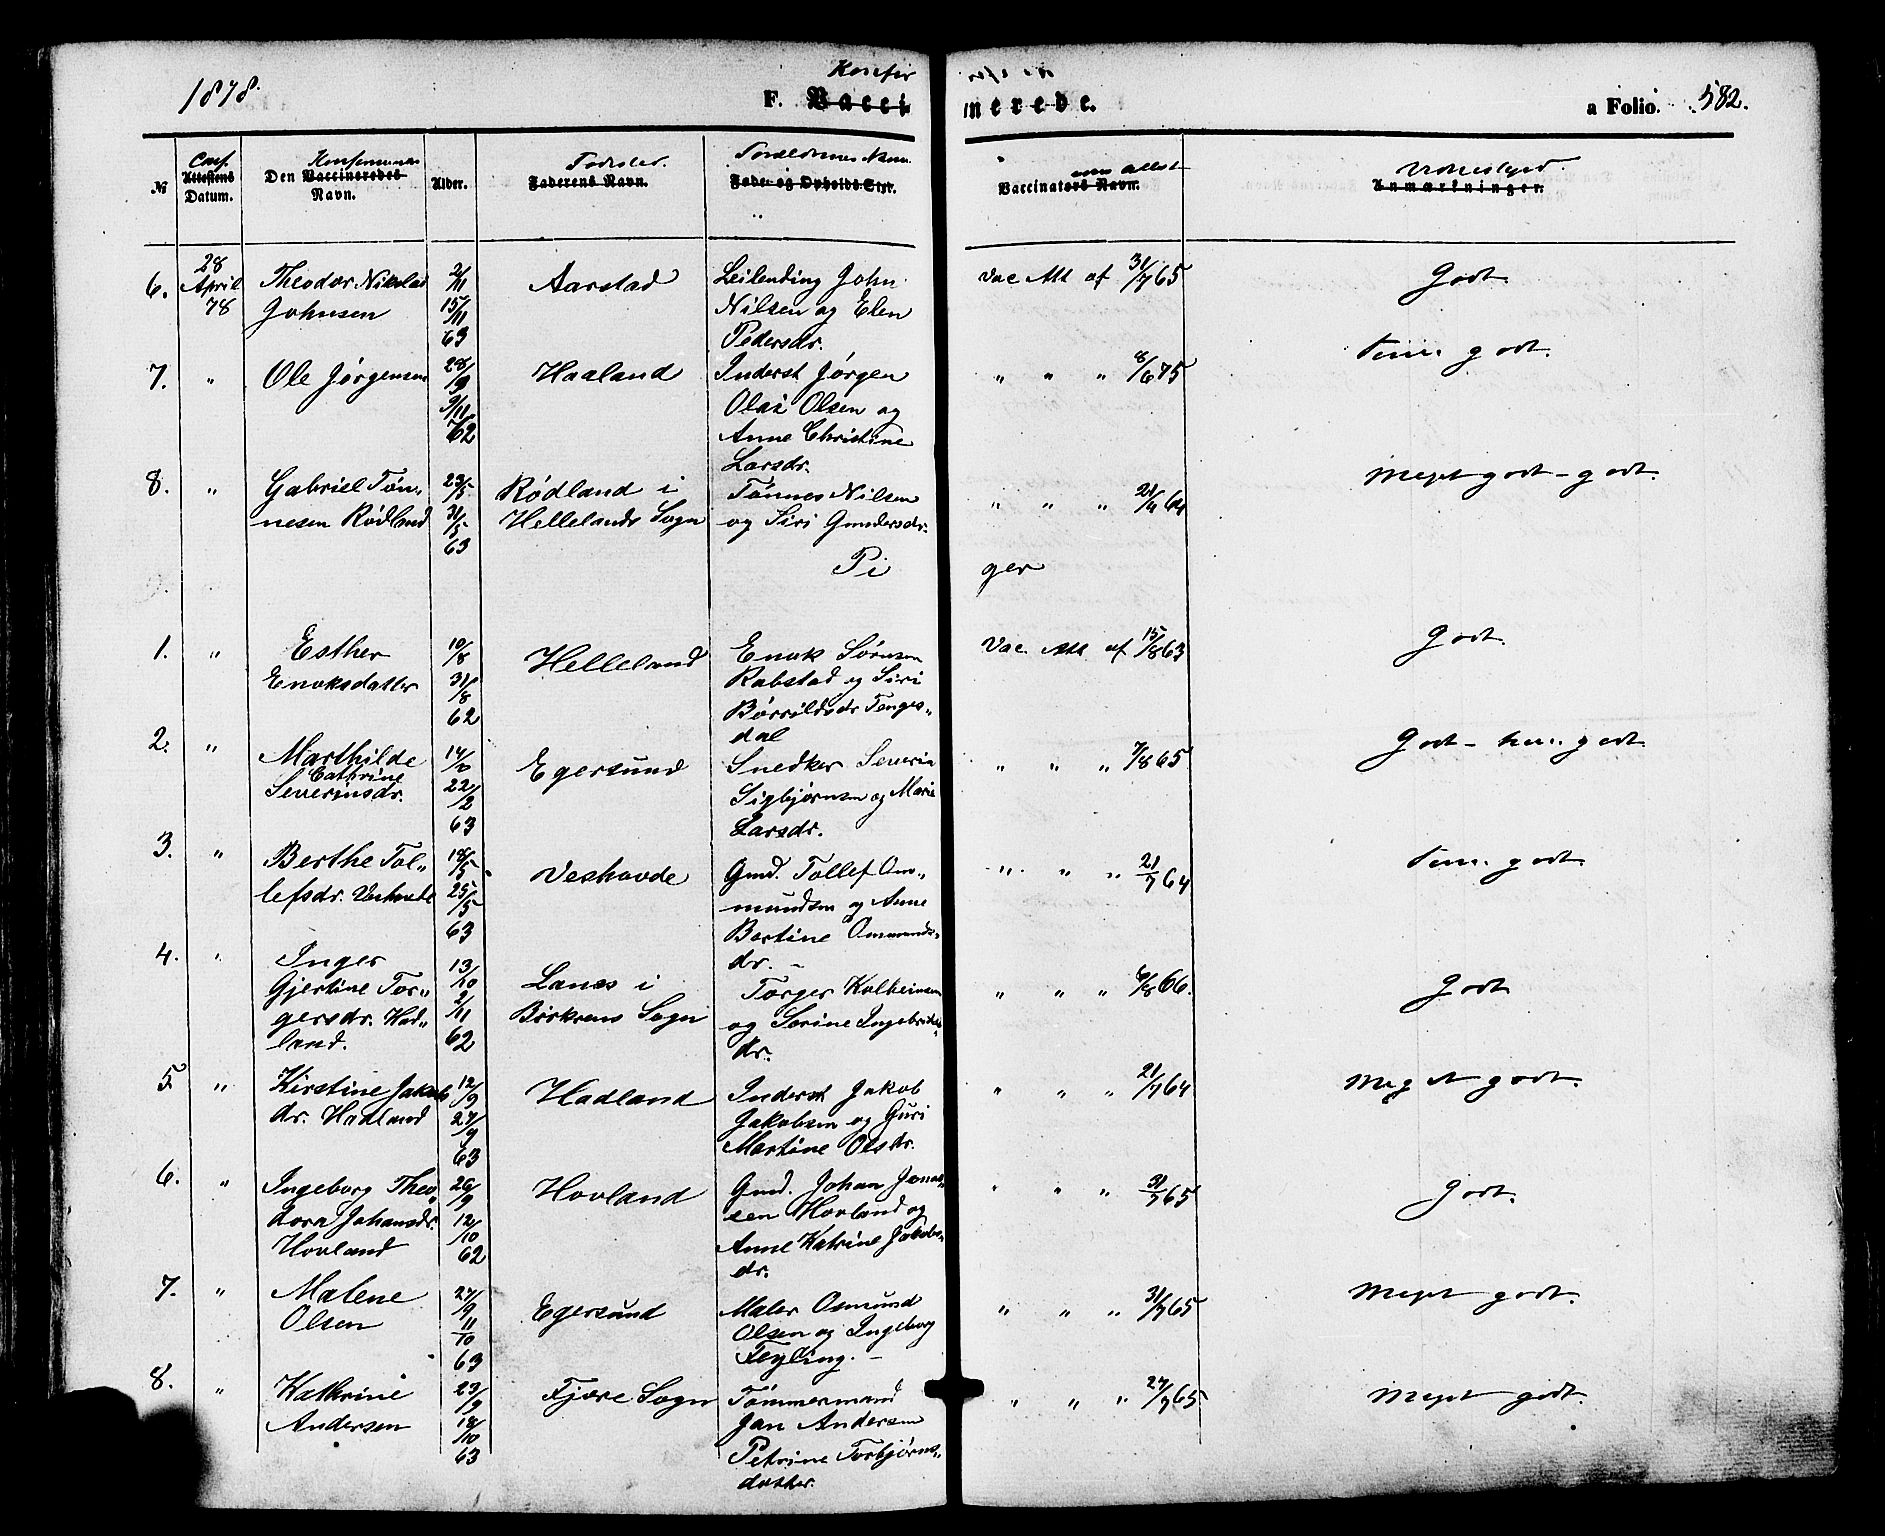 1878. F. Vacci nerede. a Folio. 582.
Konfir
№ Attestens Datum. Conf. Den Vaccineredes Navn. Alder. Faderens Navn. Fødested. Vaccinators Navn. Anmærkninger.
Forældrenes Navn.
6. 28 April 78 Theodor Nikolai Johnsen 2/11 15/11 63 Aarstad Leilending John Nilsen og Elen Pedersdr. Vac Att af 31/7 65 Godt
7. " Ole Jørgensen 28/9 9/11 62 Haaland Inderst Jørgen Olai Olsen og Anne Christine Larsdr. " " " 8/6 75 Tem. godt.
8. " Gabriel Tønnesen Rødland 23/5 31/5 63 Rødland i Hellelands Sogn Tønnes Nilsen og Siri Gundersdr. " " " 21/4 64 Meget godt - godt.
Pi ger
1. " Esther Enoksdatter 10/8 31/8 62 Helleland Enok Sørensen Rabstad og Siri Børrildsdr Tengesdal Vac. Att af 15/8 63 Godt.
2. " Marthilde Cathrine Severinsdr. 22/2 63 Egersund Snedker Severin Sigbjørnsen og Marie Larsdr. " " " 7/8 65. Godt - tem. godt.
3. " Berthe Tollefsdr. Veshovde 18/5 25/5 63 Veshovde Gmd. Tollef Ommundsen og Anne Bertine Ommundsdr. - " " " 21/7 64 Tem. godt.
4. " Inger Gjertine Torgersdr. Hadland. 13/10 2/11 62 Lanes i Birkrems Sogn Torger Kolbeinsen og Serine Ingebritsdr. " " " /8 66. Godt.
5 " Kirstine Jakobsdr. Hadland 12/9 27/9 63 Hadland Inderst Jakob Jakobsen og Guri Martine Olsdr. " " " 21/7 64 Meget godt.
6. " Ingeborg Theodora Johansdr. Hovland 26/9 12/10 62 Hovland Gmd. Johan Jonassen Hovland og Anne Katrine Jakobsdr. " " " 31/7 65 Godt.
7. " Malene Olsen 27/9 11/10 63 Egersund Maler Osmund Olsen og Ingeborg Feyling. - " " " 31/7 65 Meget godt.
8. " Kathrine Andersen 23/9 18/10 63 Fjære Sogn Tømmermand Jan Andersen Petrine Torbjørnsdatter. " " " 27/7 65 Meget godt.